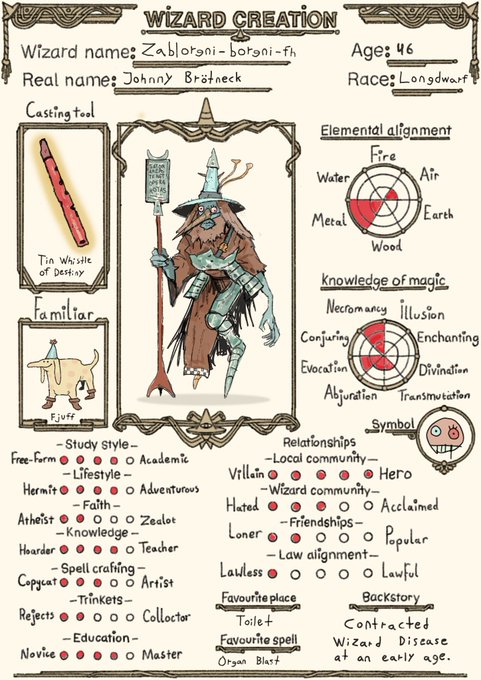 WIZARD CREATION
Wizard name: Zabloreni-boreni-fh
Age: 46
Real name: Johnny Brötneck
Race: Longdwarf
Casting tool
Tin Whistle
of Destiny
Familiar
Fjuff
Elemental alignment
Fire
Water
Air
Metal
Earth
Wood
Knowledge of magic
Necromancy
Illusion
Conjuring
Enchanting
Evocation
Divination
Abjuration
Transmutation
Symbol
-Study Style-
Free-Form
Academic
-Lifestyle-
Hermit
Adventurous
-Faith-
Atheist
Zealot
-Knowledge-
Hoarder
Teacher
-Spell crafting-
Copycat
Artist
-Trinkets-
Rejects
Colloctor
-Education-
Novice
Master
Relationships
-Local community-
Villain
Hero
-Wizard community-
Hated
Acclaimed
-Friendships-
Loner
Popular
-Law alignment-
Lawless
Lawful
Favourite place
Toilet
Favourite spell
Organ Blast
Backstory
Contracted
Wizard Disease
at an early age.